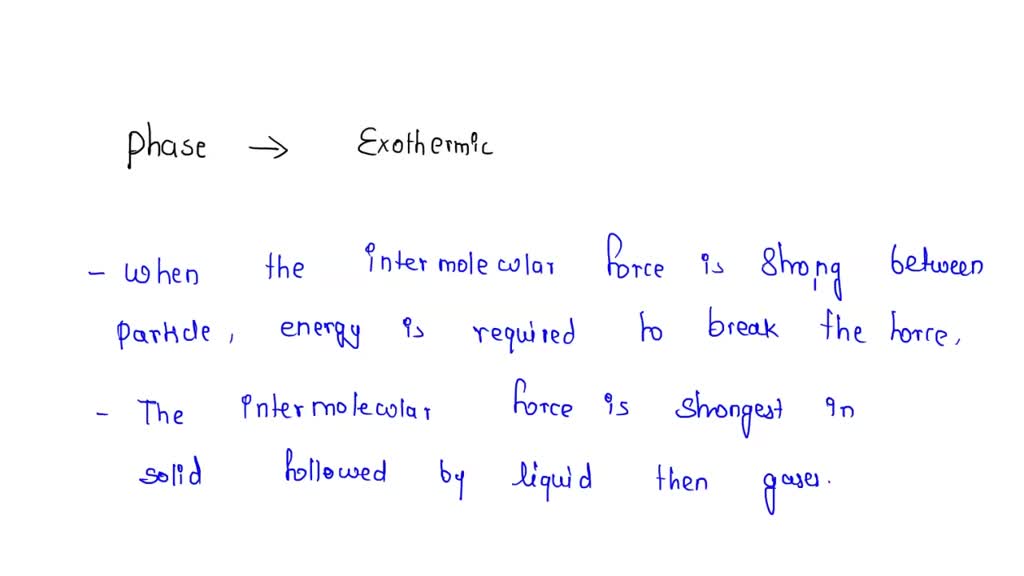 Phase → Exothermic
- when the intermolecular force is strong between
particle, energy is required to break the force,
- The intermolecular force is strongest in
solid followed by liquid then gases.